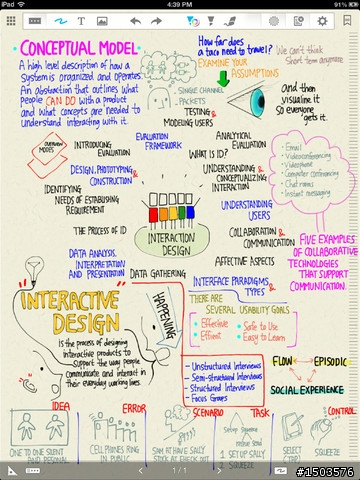 iPad
4:39 PM
91%
• CONCEPTUAL MODEL •
A high level description of how a
System is organized and operates.
An abstraction that outlines what
people CAN DO with a product
and what concepts are needed to
understand interacting with it.
How far does
a taco need to travel?
EXAMINE YOUR
ASSUMPTIONS
We can't think
Short term anymore
• SINGLE CHANNEL
PACKETS
TESTING &
MODELING USERS
And then
visualize it
So everyone
gets it.
OVERVIEW
MODES
INTRODUCING
EVALUATION
EVALUATION
FRAMEWORK
ANALYTICAL
EVALUATION
WHAT IS ID?
DESIGN, PROTOTYPING &
CONSTRUCTION
UNDERSTANDING &
CONCEPTUALIZING
INTERACTION
IDENTIFYING
NEEDS OF ESTABLISHING
REQUIREMENT
UNDERSTANDING
USERS
THE PROCESS OF ID
INTERACTION
DESIGN
COLLABORATION
&
COMMUNICATION
DATA ANALYSIS,
INTERPRETATION
AND PRESENTATION
DATA GATHERING
AFFECTIVE ASPECTS
INTERFACE PARADIGMS
TYPES &
- Email
- Videoconferencing
- Videophone
- Computer conferencing
- Chat rooms
- Instant messaging
FIVE EXAMPLES
OF COLLABORATIVE
TECHNOLOGIES
THAT SUPPORT
COMMUNICATION.
INTERACTIVE
DESIGN
is the process of designing
interactive products to
Support the way people
communicate and interact in
their everyday working lives
HAPPENING
THERE ARE
SEVERAL USABILITY GOALS
• Effective
• Efficient
• Safe to Use
• Easy to Learn
- Unstructured Interviews
- Semi-structured Interviews
- Structured Interviews
- Focus Groups
FLOW
EPISODIC
SOCIAL EXPERIENCE
IDEA
ERROR
SCENARIO
TASK
CONTROL
ONE TO ONE SILENT
CELL PHONES RING
IN PUBLIC
SAM AT HAVE SALLY
STOCK AT CHECK OUT
1 SETUP SALLY
2 SQUEEZE
SELECT
SQUEEZE
1 / 1
#1503576